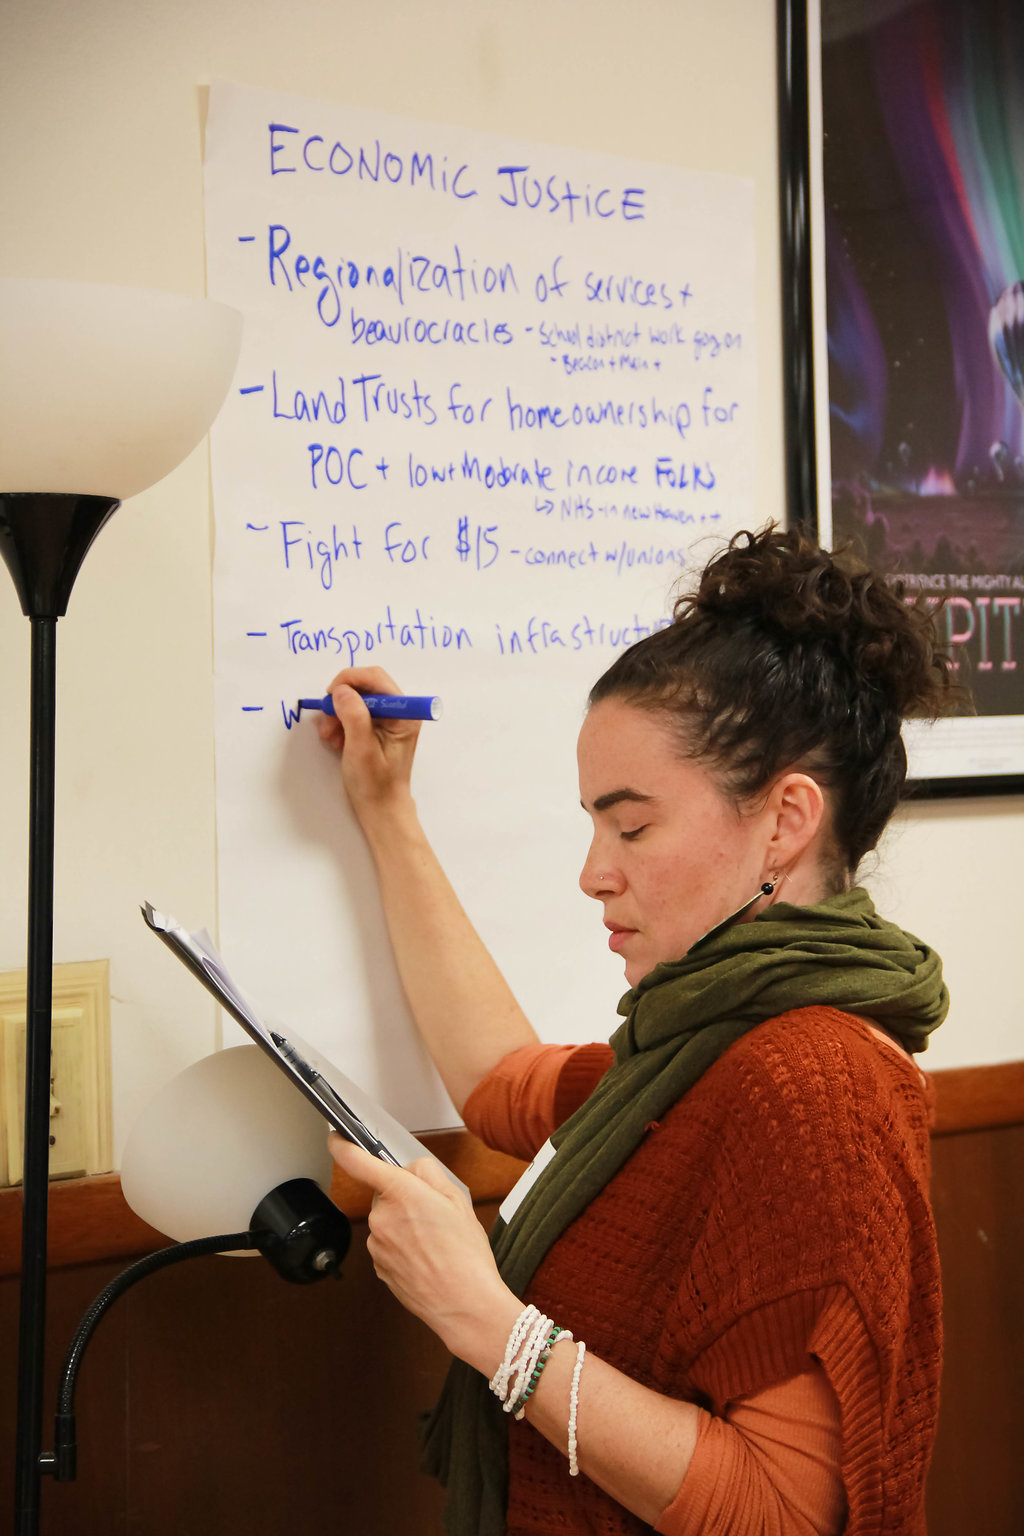 ECONOMIC JUSTICE
- Regionalization of services +
beaurocracies - School district work going on
- Beacon + Main +
- Land Trusts for homeownership for
POC + low + Moderate income FOLKS
↳ NHS - in new Haven ++
- Fight for $15 - connect w/unions
- Transportation infrastructu
- W
EXPERIENCE THE MIGHTY AL
PIT